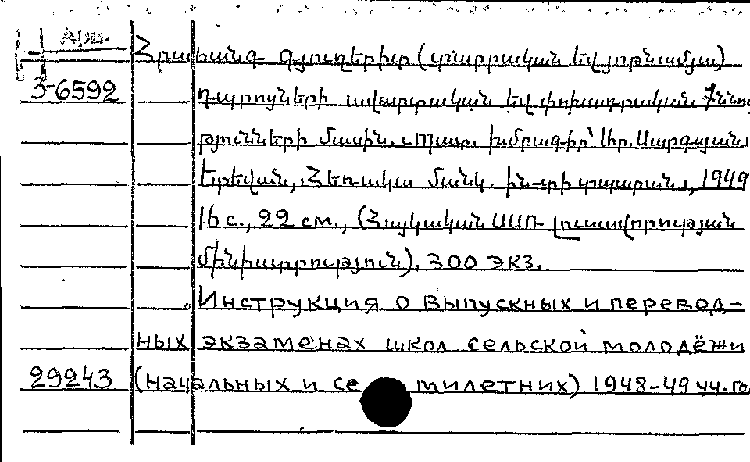 Арм.
Հրահանգ գյուղերիտ (տարրական եվ յոթնամյա)
3-6592
դպրոցների ավարտական եվ փոխադրական քննու
թյունների մասին. Պատ. խմբագիր՝ Սարգսյան.
Երեվան, Հեռակա մանկ. ին-տի տպարան, 1949
16 с., 22 см., (Հայկական ՍՍՌ լուսավորության
մինիստրություն). 300 экз.
Инструкция о выпускных и перевод-
ных экзаменах школ сельской молодёжи
29243 (начальных и се милетних) 1948-49 уч. го